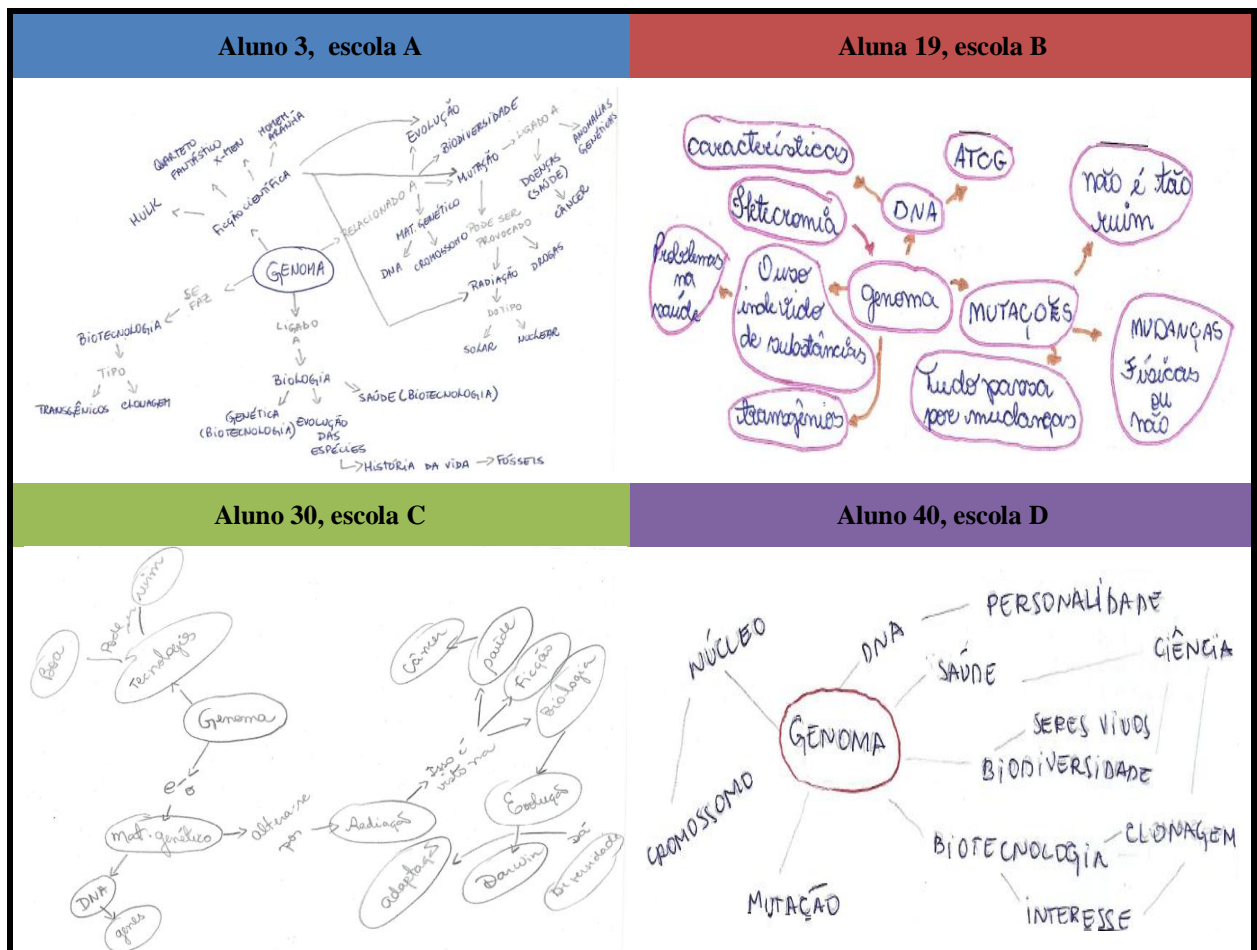 Aluno 3, escola A
Aluna 19, escola B
QUARTETO
FANTÁSTICO
X-MEN
HOMEM
ARANHA
HULK
FICÇÃO CIENTÍFICA
GENOMA
RELACIONADO A
EVOLUÇÃO
BIODIVERSIDADE
MUTAÇÃO
LIGADO A
ANOMALIAS
GENÉTICAS
DOENÇAS
(SAÚDE)
CÂNCER
MAT. GENÉTICO
DNA
CROMOSSOMO
PODE SER
PROVOCADO
RADIAÇÃO
DROGAS
DO TIPO
SOLAR
NUCLEAR
SE
FAZ
BIOTECNOLOGIA
TIPO
TRANSGÊNICOS
CLONAGEM
LIGADO
A
BIOLOGIA
SAÚDE (BIOTECNOLOGIA)
GENÉTICA
(BIOTECNOLOGIA)
EVOLUÇÃO
DAS
ESPÉCIES
HISTÓRIA DA VIDA
FÓSSEIS
características
ATCG
não é tão
ruim
DNA
Problemas
na
saúde
O uso
indevido
de substâncias
genoma
MUTAÇÕES
MUDANÇAS
Físicas
ou
não
Tudo passa
por mudanças
transgênios
Aluno 30, escola C
Aluno 40, escola D
Boa
Pode ser
ruim
Tecnologia
Genoma
é o
Mat. genético
altera-se
por
Radiação
Isso é
visto na
Câncer
saúde
Ficção
Biologia
Evolução
adaptação
Darwin
Dá
Diversidade
DNA
genes
NÚCLEO
DNA
PERSONALIDADE
SAÚDE
CIÊNCIA
GENOMA
SERES VIVOS
BIODIVERSIDADE
CROMOSSOMO
BIOTECNOLOGIA
CLONAGEM
MUTAÇÃO
INTERESSE